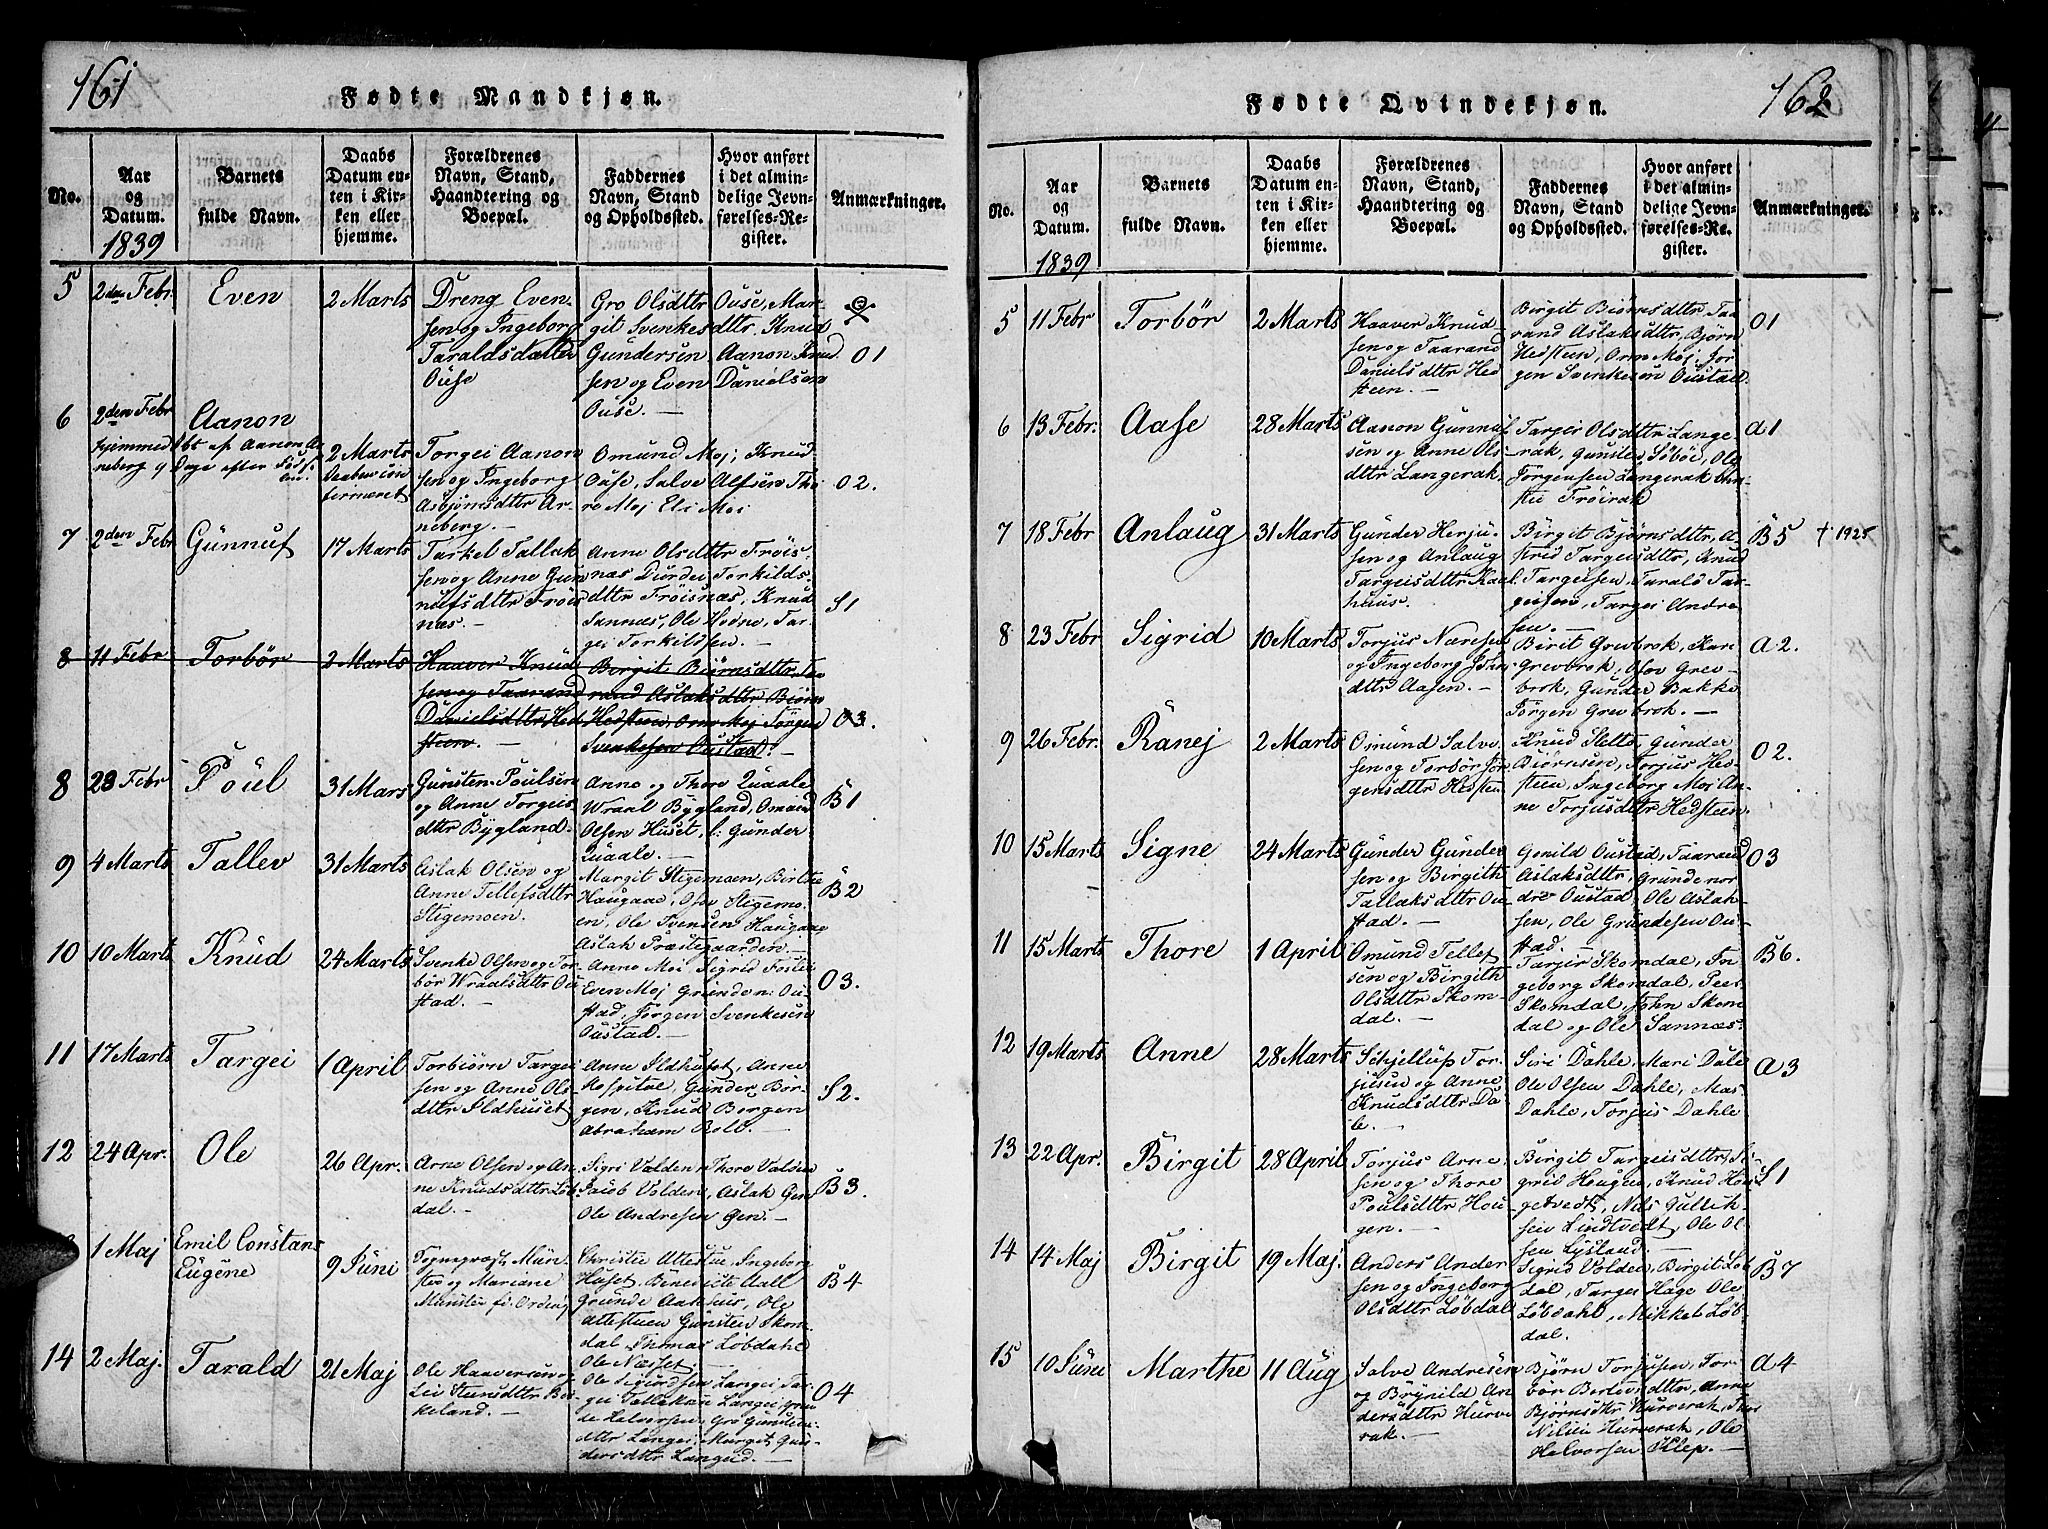 161
Fødte Mandkjøn.
No.
Aar
og
Datum.
1839
Barnets
fulde Navn.
Daabs
Datum en-
ten i Kir-
ken eller
hjemme.
Forældrenes
Navn, Stand,
Haandtering og
Boepæl.
Faddernes
Navn, Stand
og Opholdssted.
Hvor anført
i det almin-
delige Jevn-
førelses-Re-
gister.
Anmærkninger.
5
2den Febr.
Even
2 Marts
Dreng Even-
sen og Ingeborg
Taraldsdatter
Ouse
Gro Olsdttr Ouse, Mar-
git Svenkesdttr, Knud
Gundersen Aanon Knud
sen og Even Danielsen
Ouse. —
O 1
6
2den Febr
Aanon
hjemmedøbt af Aanon Ar
neberg 9 Dage efter Føds
elen.
2 Marts
Daaben con
fermeret
Torgei Aanon
sen og Ingeborg
Asbjørnsdttr Ar-
neberg. —
Omund Moj, Knud
Ouse, Salve Alfsen Tho
re Moj Eli Moi
O 2.
7
2den Febr
Gunnuf
17 Marts
Tarkel Tallak
sen og Anne Gun
nufsdttr Frøis
næs. —
Anne Olsdttr Frøis-
næs Dordei Torkilds-
dttr Frøisnæs, Knud
Sannæs, Ole Hodne, Tar-
gei Torkildsen. —
S 1
8
11 Febr
Torbør
2 Marts
Haaver Knud
sen og Taarand
Danielsdttr Hed
steen. —
Bergit Biørnsdttr, Taa
rand Aslaksdttr Biørn
Hedsteen, Orm Moj Jørgen
Svenkesen Oustad. —
O 3.
8
23 Febr
Poul
31 Mars
Gunsten Poulsen
og Anne Torgeis
dttr Bygland.
Anne og Thore Quaale
Wraal Bygland, Omund
Olsen Huset, l: Gunder
Quaale.
B 1
9
4 Marts
Tallev
31 Marts
Aslak Olsen og
Anne Tellefsdttr
Stigemoen.
Margit Stigemoen, Birthe
Haugaae, Osov Stigemo-
en, Ole Svensen Haugaae,
Aslak Præstegaarden. —
B 2
10
10 Marts
Knud
24 Marts
Svenke Olsen og Tor-
bør Wraalsdttr Ou-
stad. —
Anne Moi Sigrid Foslie
Even Moj Grunden: Ou-
stad, Jørgen Svenkesen
Oustad. —
O 3.
11
17 Marts
Targei
1 April
Torbiørn Targei
sen og Anne Ols
dttr Ildhuset
Anne Ildhuset, Anne
hospitue, Gunder Bør-
gen, Knud Børgen
Abraham Bolv. —
S 2.
12
24 Apr.
Ole
26 Apr.
Arne Olsen og An-
ne Knudsdttr Løb-
dal. —
Sigri Volden Thore Volden
Jacob Volden, Aslak Gen
Ole Andresen Gen. —
B 3.
1 Maj
Emil Constans
Eugene
9 Juni
Sogneprest Mün-
ster og Mariane
Münster fd. Ording
Christie Attestue, Ingeborg
Huset, Benedicte Aall
Grunde Aakhus, Ole
Attestuen Gunsten Skom-
dal Thomas Løbdahl
Ole Næsset
B 4
14
2 Maj.
Tarald
21 Maj
Ole Haaversen og
Liv Steensdttr Bir-
keland. —
Ole Sigurdsen Langei Tar-
gei Tallaksen Langei, Grun
de Helvorsen, Gro Gunstens-
dttr Langei, Margit Gun-
dersdttr Langeid. —
O 4
162
Fødte Qvindekjøn.
No.
Aar
og
Datum.
1839
Barnets
fulde Navn.
Daabs
Datum en-
ten i Kir-
ken eller
hjemme.
Forældrenes
Navn, Stand,
Haandtering og
Boepæl.
Faddernes
Navn, Stand
og Opholdssted.
Hvor anført
i det almin-
delige Jevn-
førelses-Re-
gister.
Anmærkninger.
5
11 Febr
Torbör
2 Marts
Haaver Knud-
sen og Taarand
Danielsdttr Hed
steen. —
Birgit Biørnsdttr, Taa-
rand Aslaksdttr, Bjørn
Hedsteen, Orm Moj, Jør
gen Svenkesen Oustad.
O 1
6
13 Febr.
Aase
28 Marts
Aanon Gunnuf
sen og Anne Ols
dttr Langerak
Targei Olsdttr Lange-
rak, Gunsten Løbøe, Ole
Jørgensen Langerak Chri-
stie Frøirak
A 1
7
18 Febr
Anlaug
31 Marts
Gunder Herju-
sen og Anlaug
Targeisdttr Kaal
huus.
Birgit Bjørnsdttr, A-
strid Targeisdttr, Knud
Targeisen, Tarald Tar-
geisen, Targei Andre-
sen. —
B 5
† 1925
8
23 Febr
Sigrid
10 Marts
Torjus Næresen
og Ingeborg John
dttr Aasen. —
Birit Grevbrok, Kari
Grevbrok, Osov Grev-
brok, Gunder Bakke
Jørgen Grevbrok. —
A 2.
9
26 Febr.
Ranej
2 Marts
Osmund Salve
sen og Torbør Jør
gensdttr Hedsteen
Knud Sletto, Gunder
Biørnsen, Torjus Hed-
steen, Ingeborg Moj An-
ne Torjusdttr Hedsteen
O 2.
10
15 Marts
Signe
24 Marts
Gunder Gunder
sen og Birgith
Tallaksdttr Ou
stad. —
Genild Oustad, Taarand
Aslaksdttr, Grunde nor
dre Oustad, Ole Aslak-
sen, Ole Grundesen Ou-
stad.
O 3
11
15 Marts
Thore
1 April
Omund Tellef
sen og Birgith
Olsdttr Skom-
dal.
Tarjer Skomdal, In
geborg Skomdal, Peer
Skomdal, John Skom
dal og Ole Sannæs.
B 6.
12
19 Marts
Anne
28 Marts
Schjellup Tor-
jusen og Anne
Knudsdttr Da
le. —
Siri Dahle, Mari Dale
Ole Olsen Dahle, Mas
Dahle, Torjus Dahle
A 3
13
22 Apr.
Birgit
28 April
Torjus Arne
sen og Thore
Poulsdttr Hou
gen. —
Birgit Targeisdttr, Si-
grid Hougen, Knud Hou
getvedt, Nils Gullik-
sen Lindtvedt, Ole Ol
sen Lysland. —
S 1
14
14 Maj
Birgit
19 Maj.
Anders Ander
sen og Ingeborg
Olsdttr Løbdal
Sigrid Volden, Birgit Løb
dal, Targei Hage Ole
Løbdahl, Mikkel Løb-
dal.
B 7
15
10 Juni
Marthe
11 Aug
Salve Andresen
og Brynild An
dersdttr Hurve
rak. —
Bjørn Torjusen, Tor-
bør Bertevsdttr, Anne
Bjørnsdttr Hurverak, Thor
Nilsen Hurverak, Ole
Helvorsen Klep. —
A 4